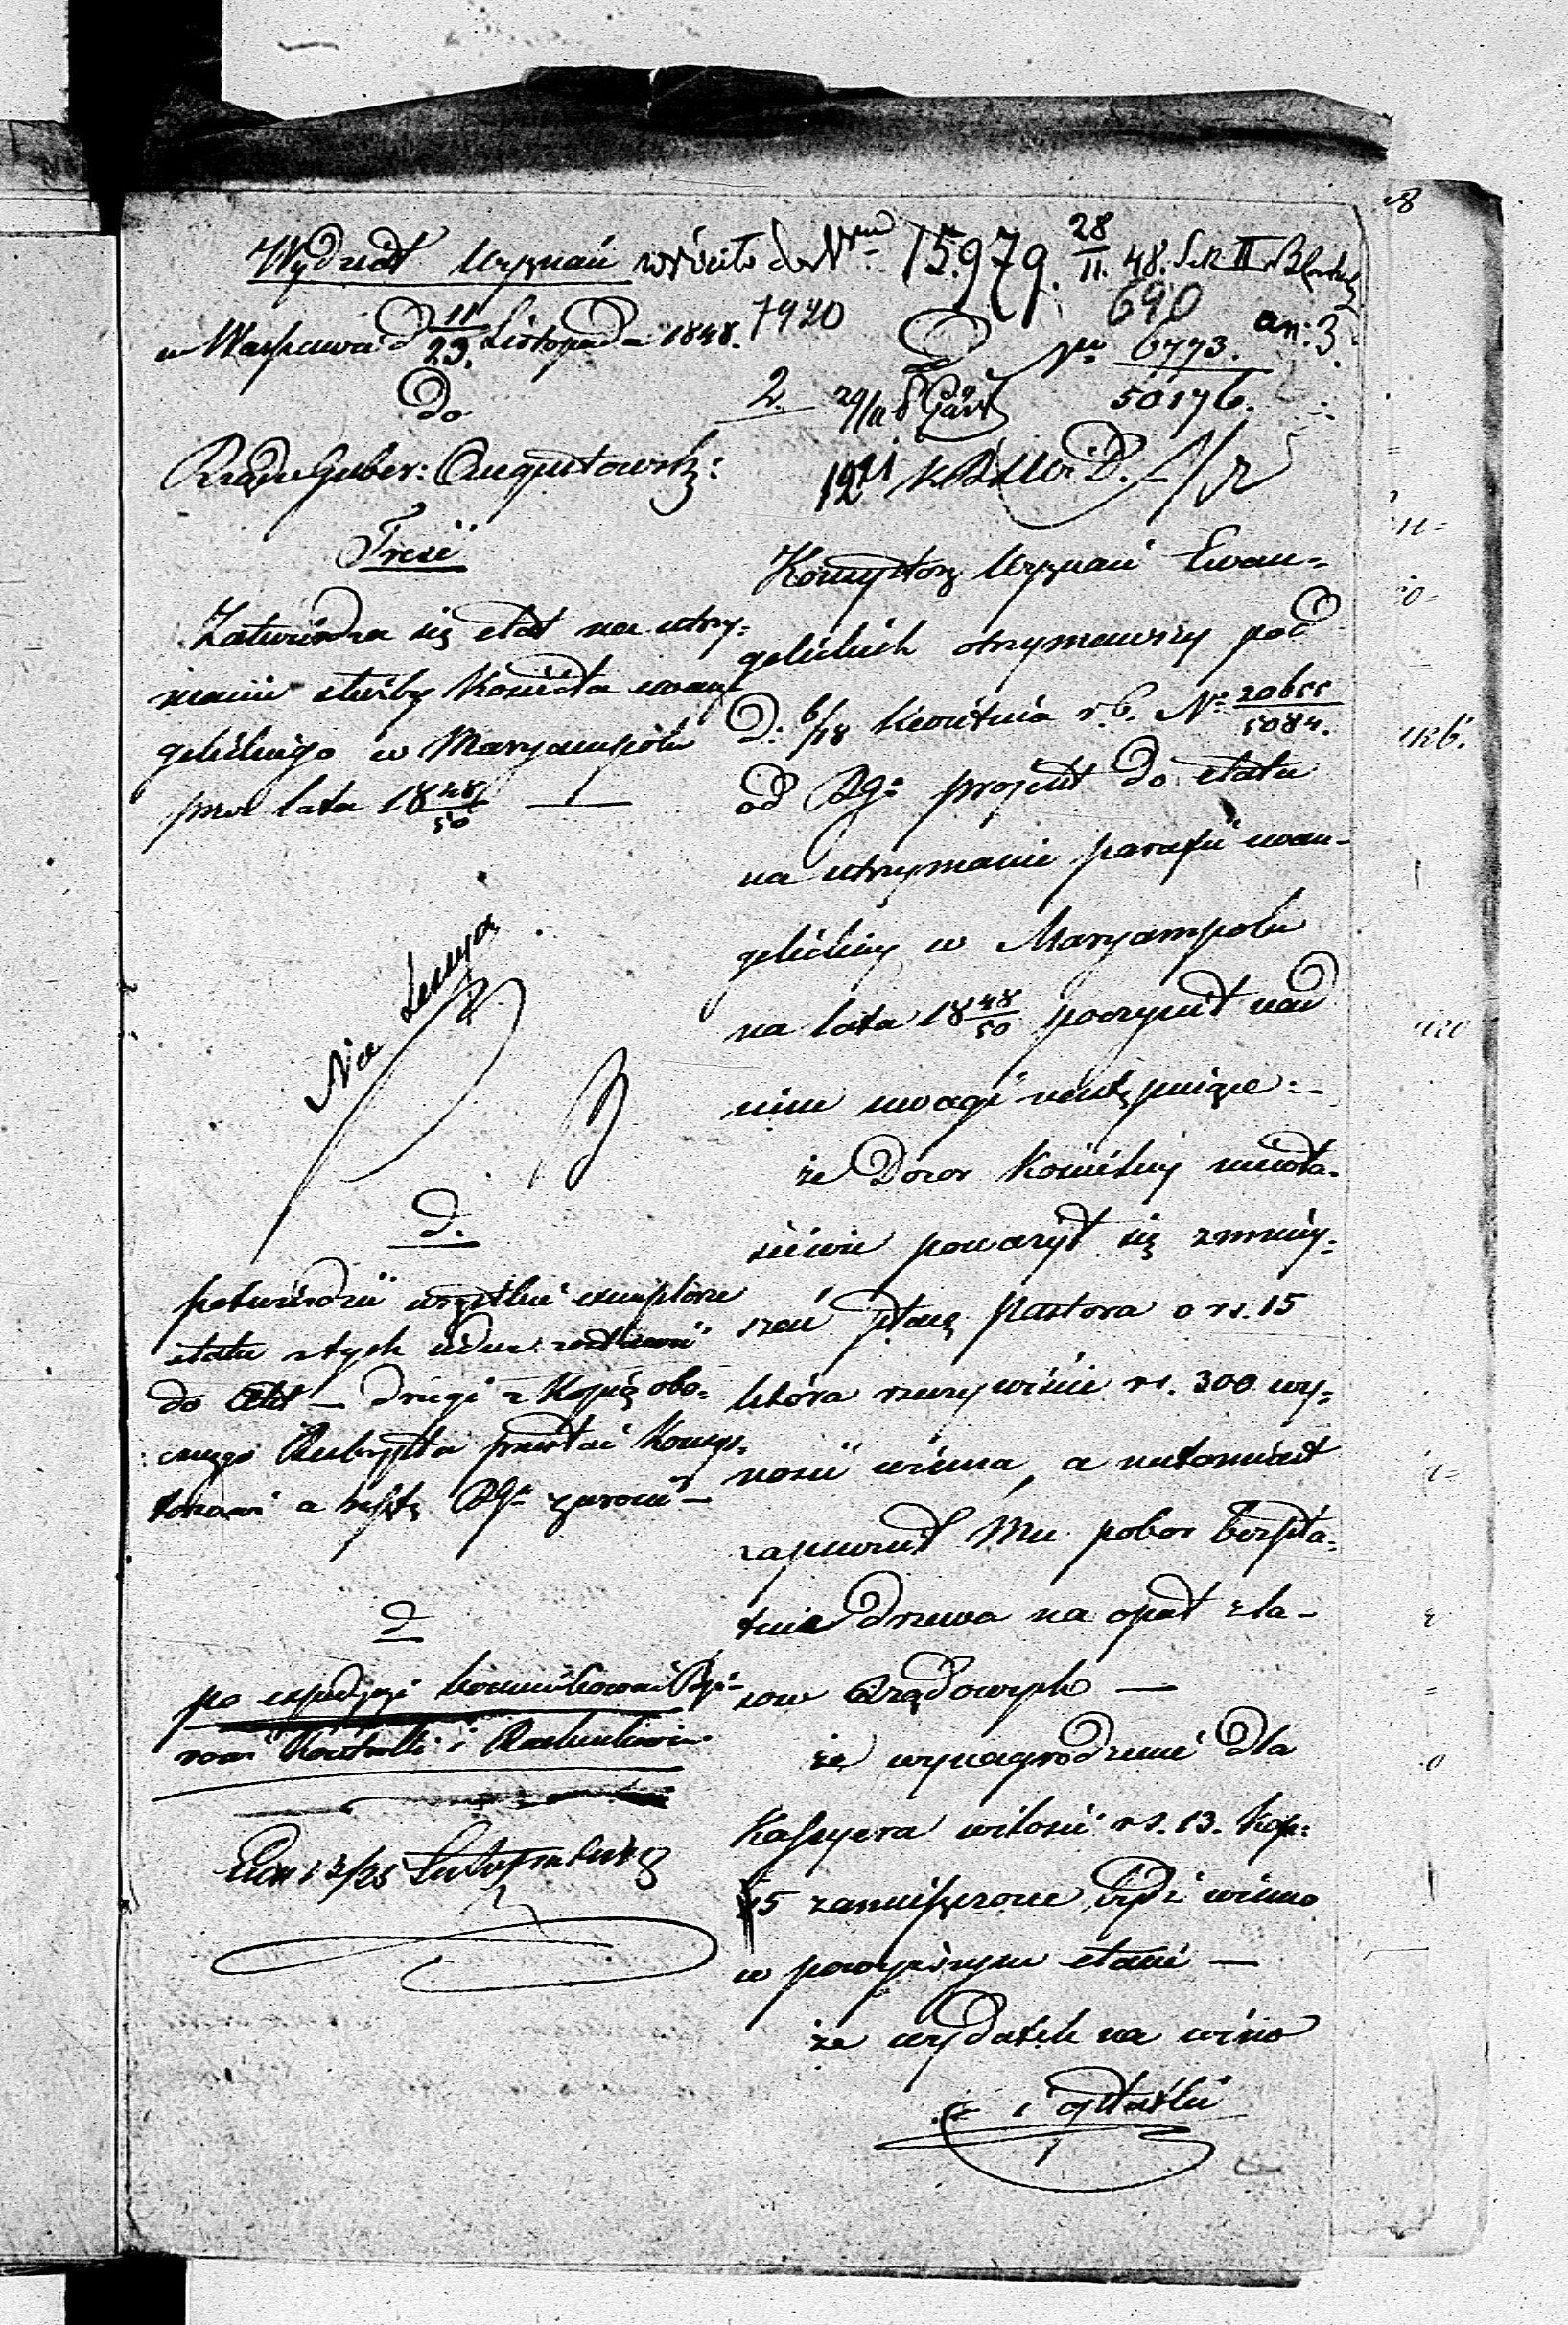 Wydział Wyznań wróciło do Nru 15.979. 28/11. 48. Sek II
w Warszawie d 11/23. Listopada 1848. 7920
690
an: 3.
Do
Nr 6773.
50176.
2. 29/11 8
Rządu Guber: Augustowsk:
Treść
Zatwierdza się etat na utrzy-
manie służby Kościoła ewan-
gelickiego w Maryampolu
przez lata 18 48/50 —
d.
potwierdzić wszystkie exemplarze
etatu z tych zostawić
do Akt — drugi z Kopią obo-
cznego Reskryptu przesłać Konsys-
torzowi a resztę RGu zwrócić —
d
po expedycyi komunikować
Kontrolli i Rachunkowi
Konsystorz Wyznań Ewan-
gelickich otrzymawszy pod
D: 6/18 Kwietnia r. b. Nr 20655/5084.
od RGo projekt do etatu
na utrzymanie parafii ewan-
gelickiej w Maryampolu
na lata 18 48/50 poczynił nad
nim uwagi następujące: —
że Dozor Kościelny niewła-
ściwie poważył się zmniej-
szać płacę Pastora o rs. 15
która rzeczywiście rs. 300 wy-
nosić winna, a natomiast
zapewnił Mu pobor bezpła-
tnie drzewa na opał z la-
sow Rządowych —
że wynagrodzenie dla
Kassyera w ilości rs. 13. kop:
45 zamieszczone być winno
w powyższym etacie —
że wydatek na wino
i opłatki